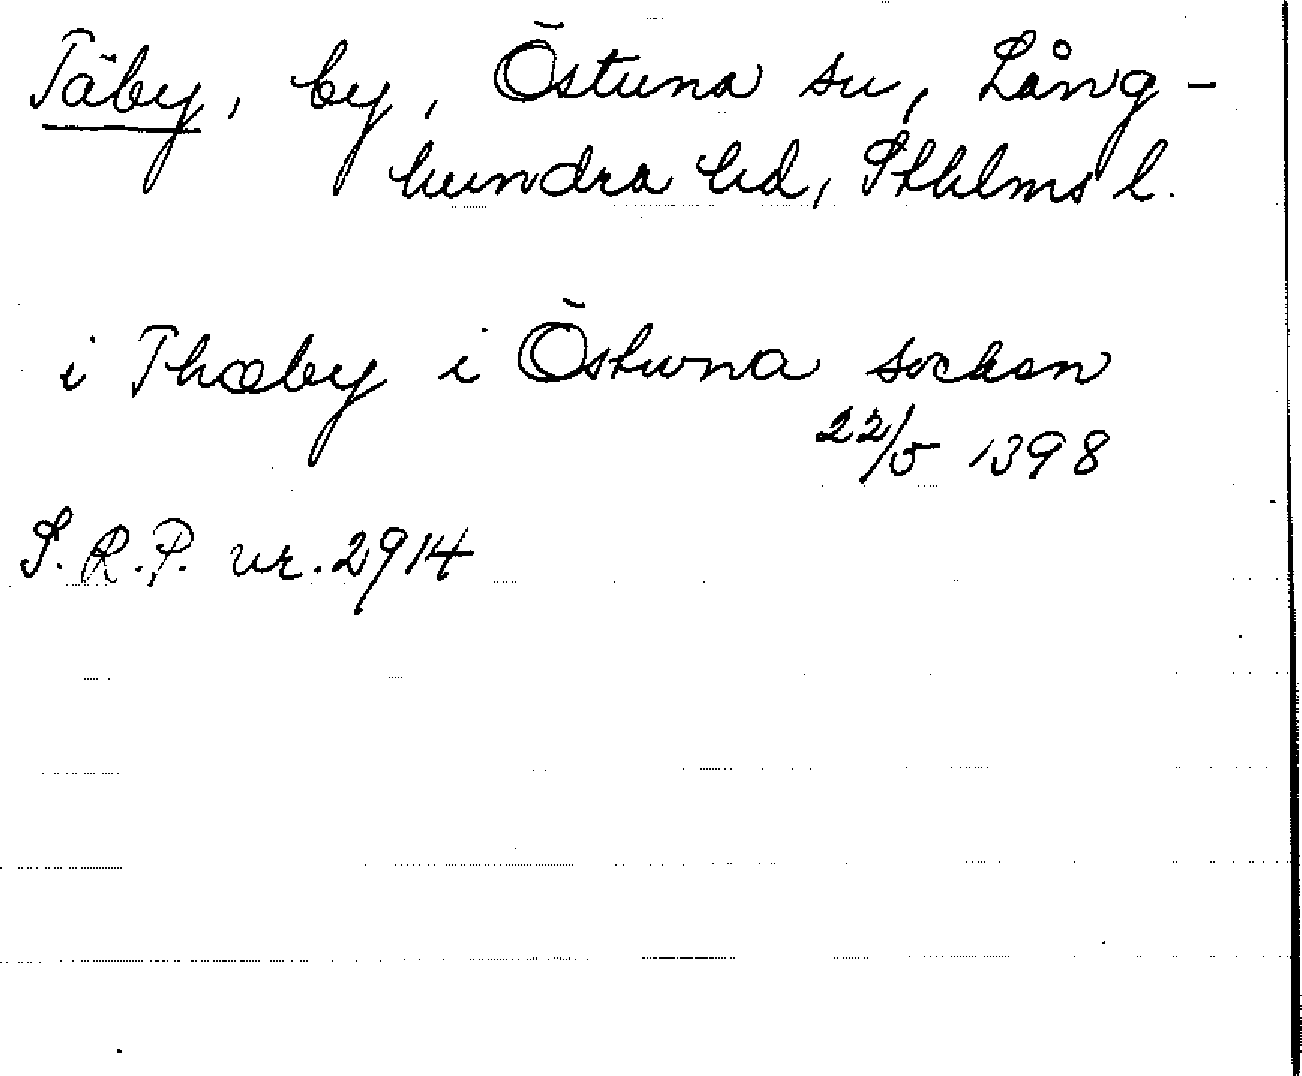 Täby, by, Östuna sn, Lång-
hundra hd, Sthlms l.
i Thæby i Östuna sochen
22/5 1398
S.R.P. nr. 2914